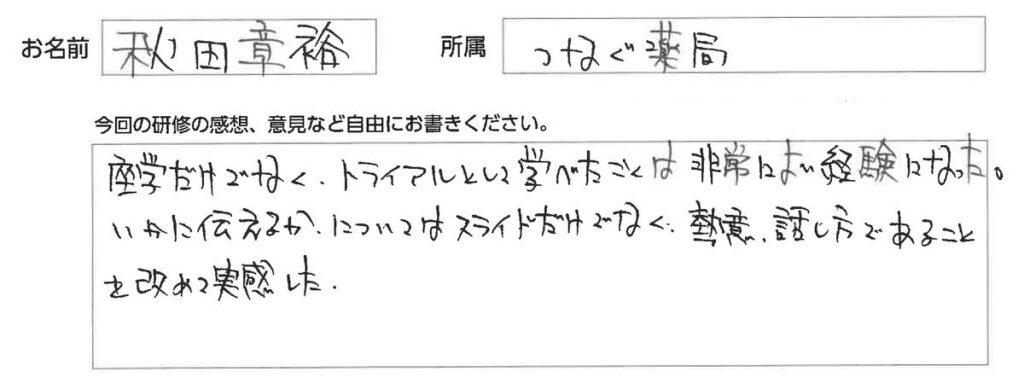 お名前 秋田章裕 所属 つなぐ薬局
今回の研修の感想、意見など自由にお書きください。
座学だけでなく、トライアルとして学べたことは非常によい経験になった。
いかに伝えるか、についてはスライドだけでなく、熱意、話し方であること
を改めて実感した。